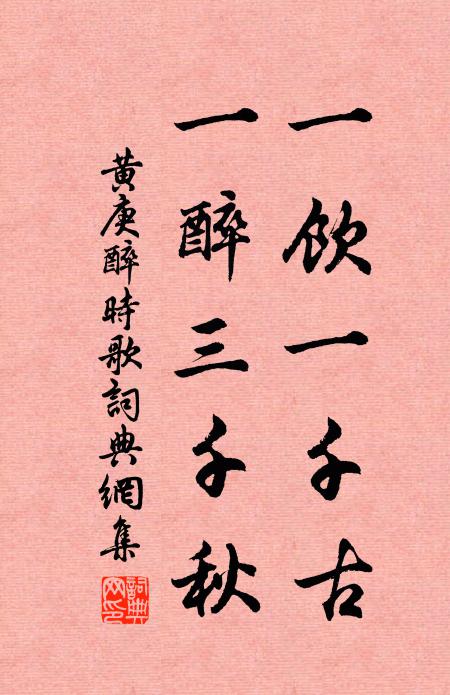 一飲一千古
一醉三千秋
黃庚醉時歌詞典網集
詞典網印